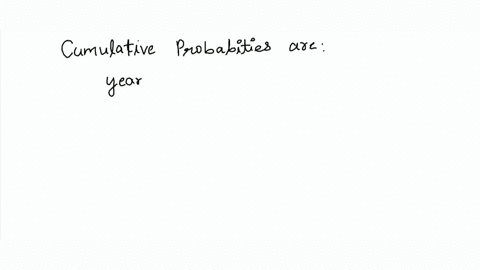 Cumulative Probabities are:
year